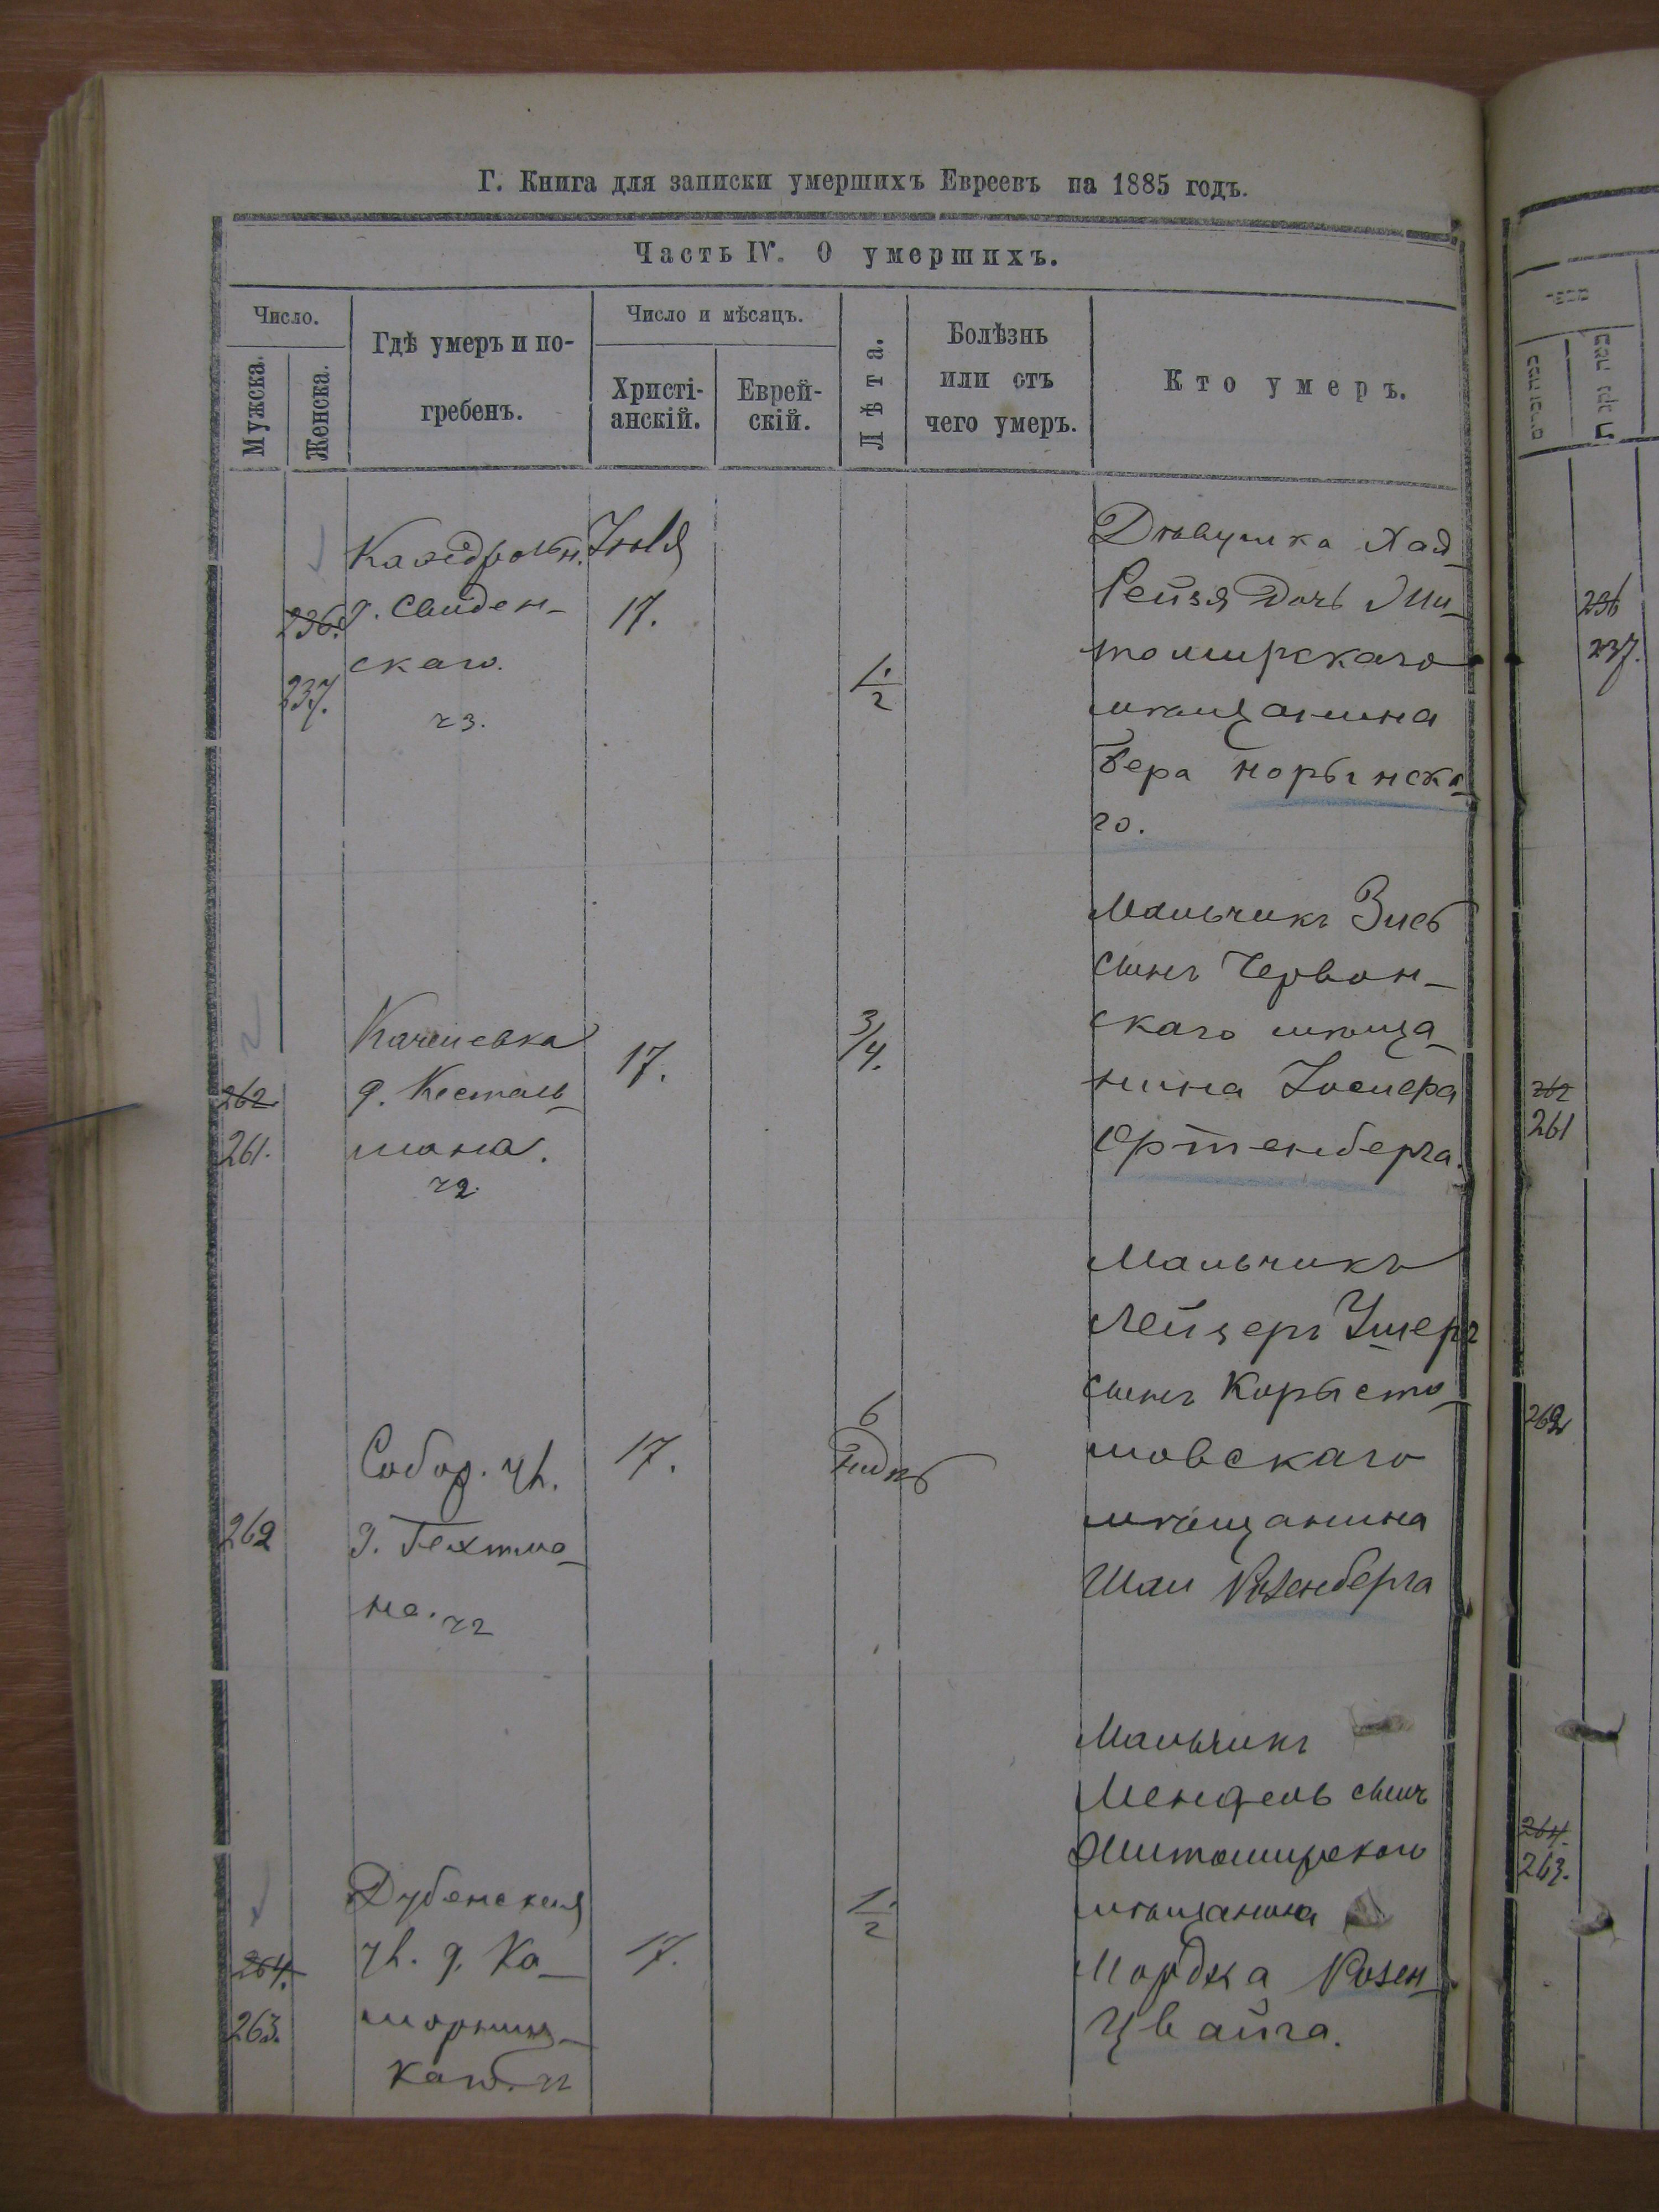 Г. Книга для записки умершихъ Евреевъ на 1885 годъ.
Часть IV. О умершихъ.
Число.
Мужска.
Женска.
Гдѣ умеръ и по-
гребенъ.
Число и мѣсяцъ.
Христі-
анскій.
Еврей-
скій.
Лѣта.
Болѣзнь
или отъ
чего умеръ.
Кто умеръ.
236.
237.
Каѳедральн.
д. Свиден-
скаго.
ч3.
Іюля
17.
1/2
Дѣвушка Хая
Рейзя дочь Жи-
томирскаго
мѣщанина
Бера Норынска-
го.
262.
261.
д. Кесталь-
мана.
ч2.
17.
3/4.
Мальчикъ Зись
сынъ Червон-
скаго мѣща-
нина
Ортенберга.
262
Собор. ч.
д. Гехтма-
на. ч2
17.
6
Мальчикъ
Лейзеръ Ушеръ
сынъ Коросты-
шовскаго
мѣщанина
Шаи Розенберга
264.
263.
Дубенская
ч. д. Ко-
17.
1/2
Мальчикъ
Мендель сынъ
Житомирскаго
мѣщанина
Мордка Розен-
цвайга.
236
237.
262
261
262
264.
263.